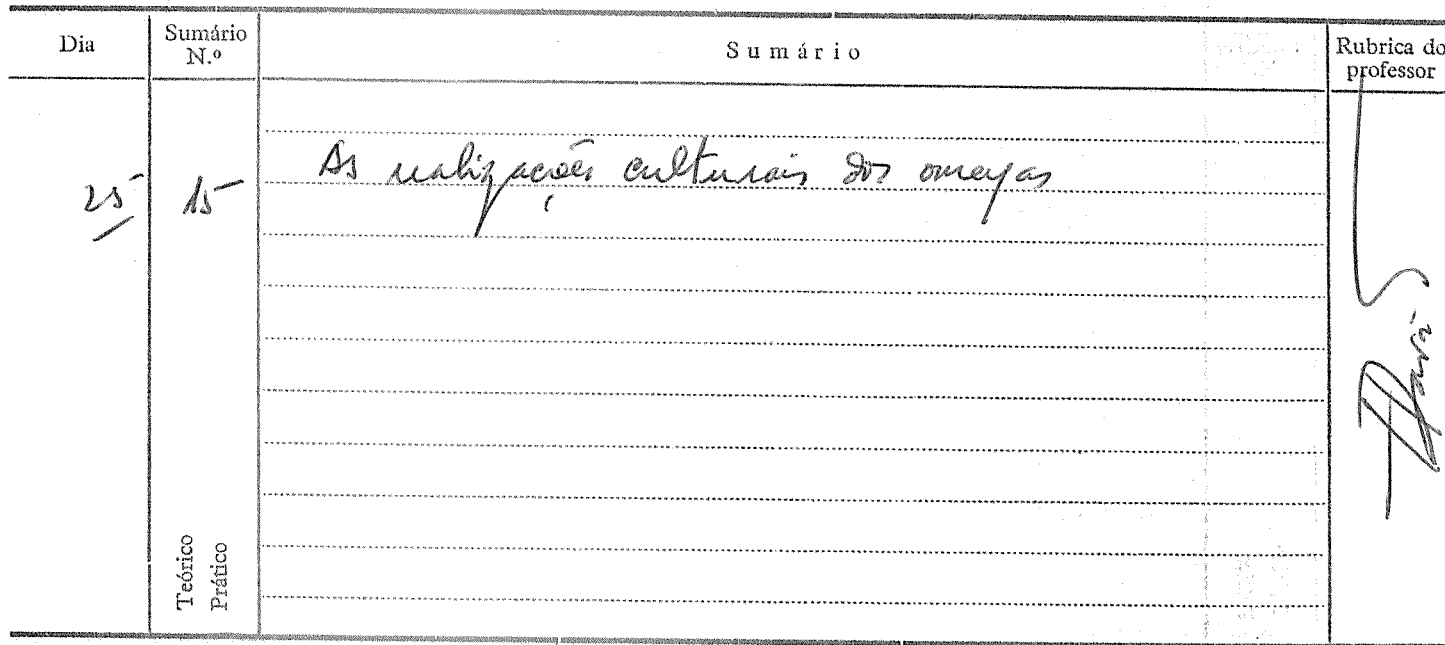 Dia
Sumário N.º
Sumário
Rubrica do professor
25
15
As realizações culturais dos omeyas
Teórico
Prático